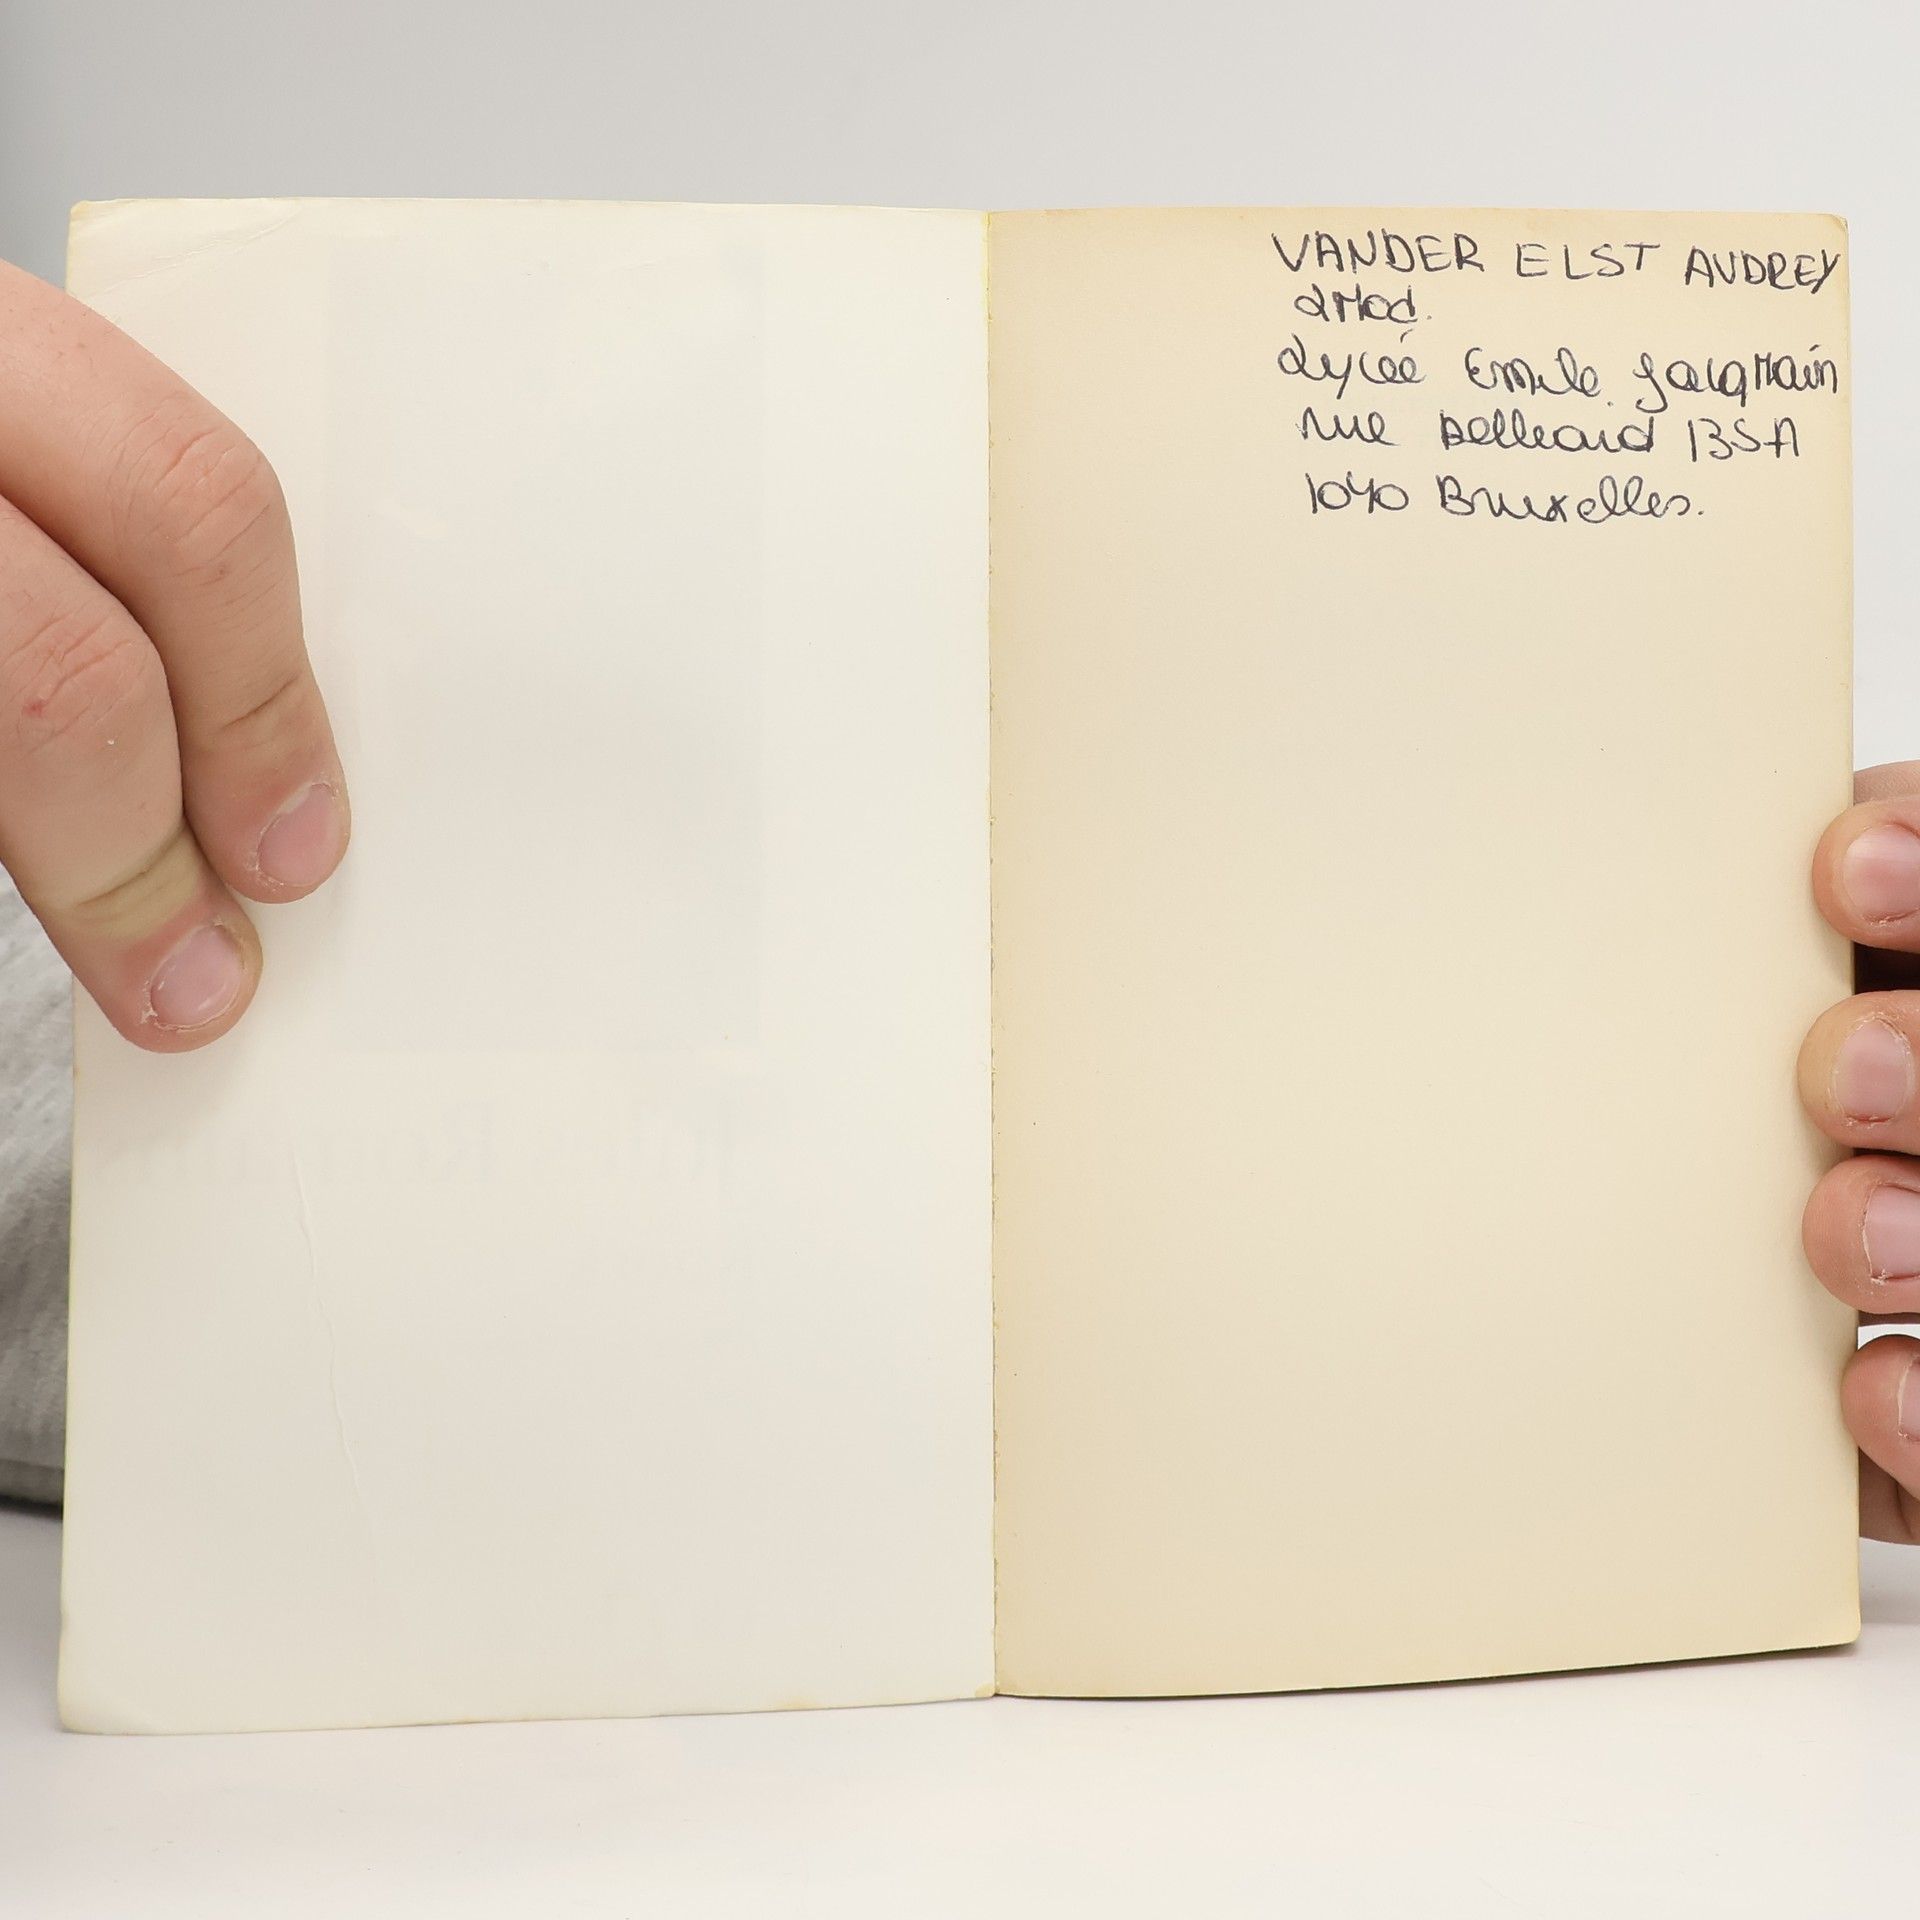 VANDER ELST AUDREY
2Mod.
Lycée Emile Jacqmain
rue Belliard 135A
1040 Bruxelles.